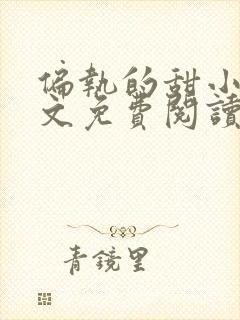 偏執的甜小
文免費閱讀
青鏡里